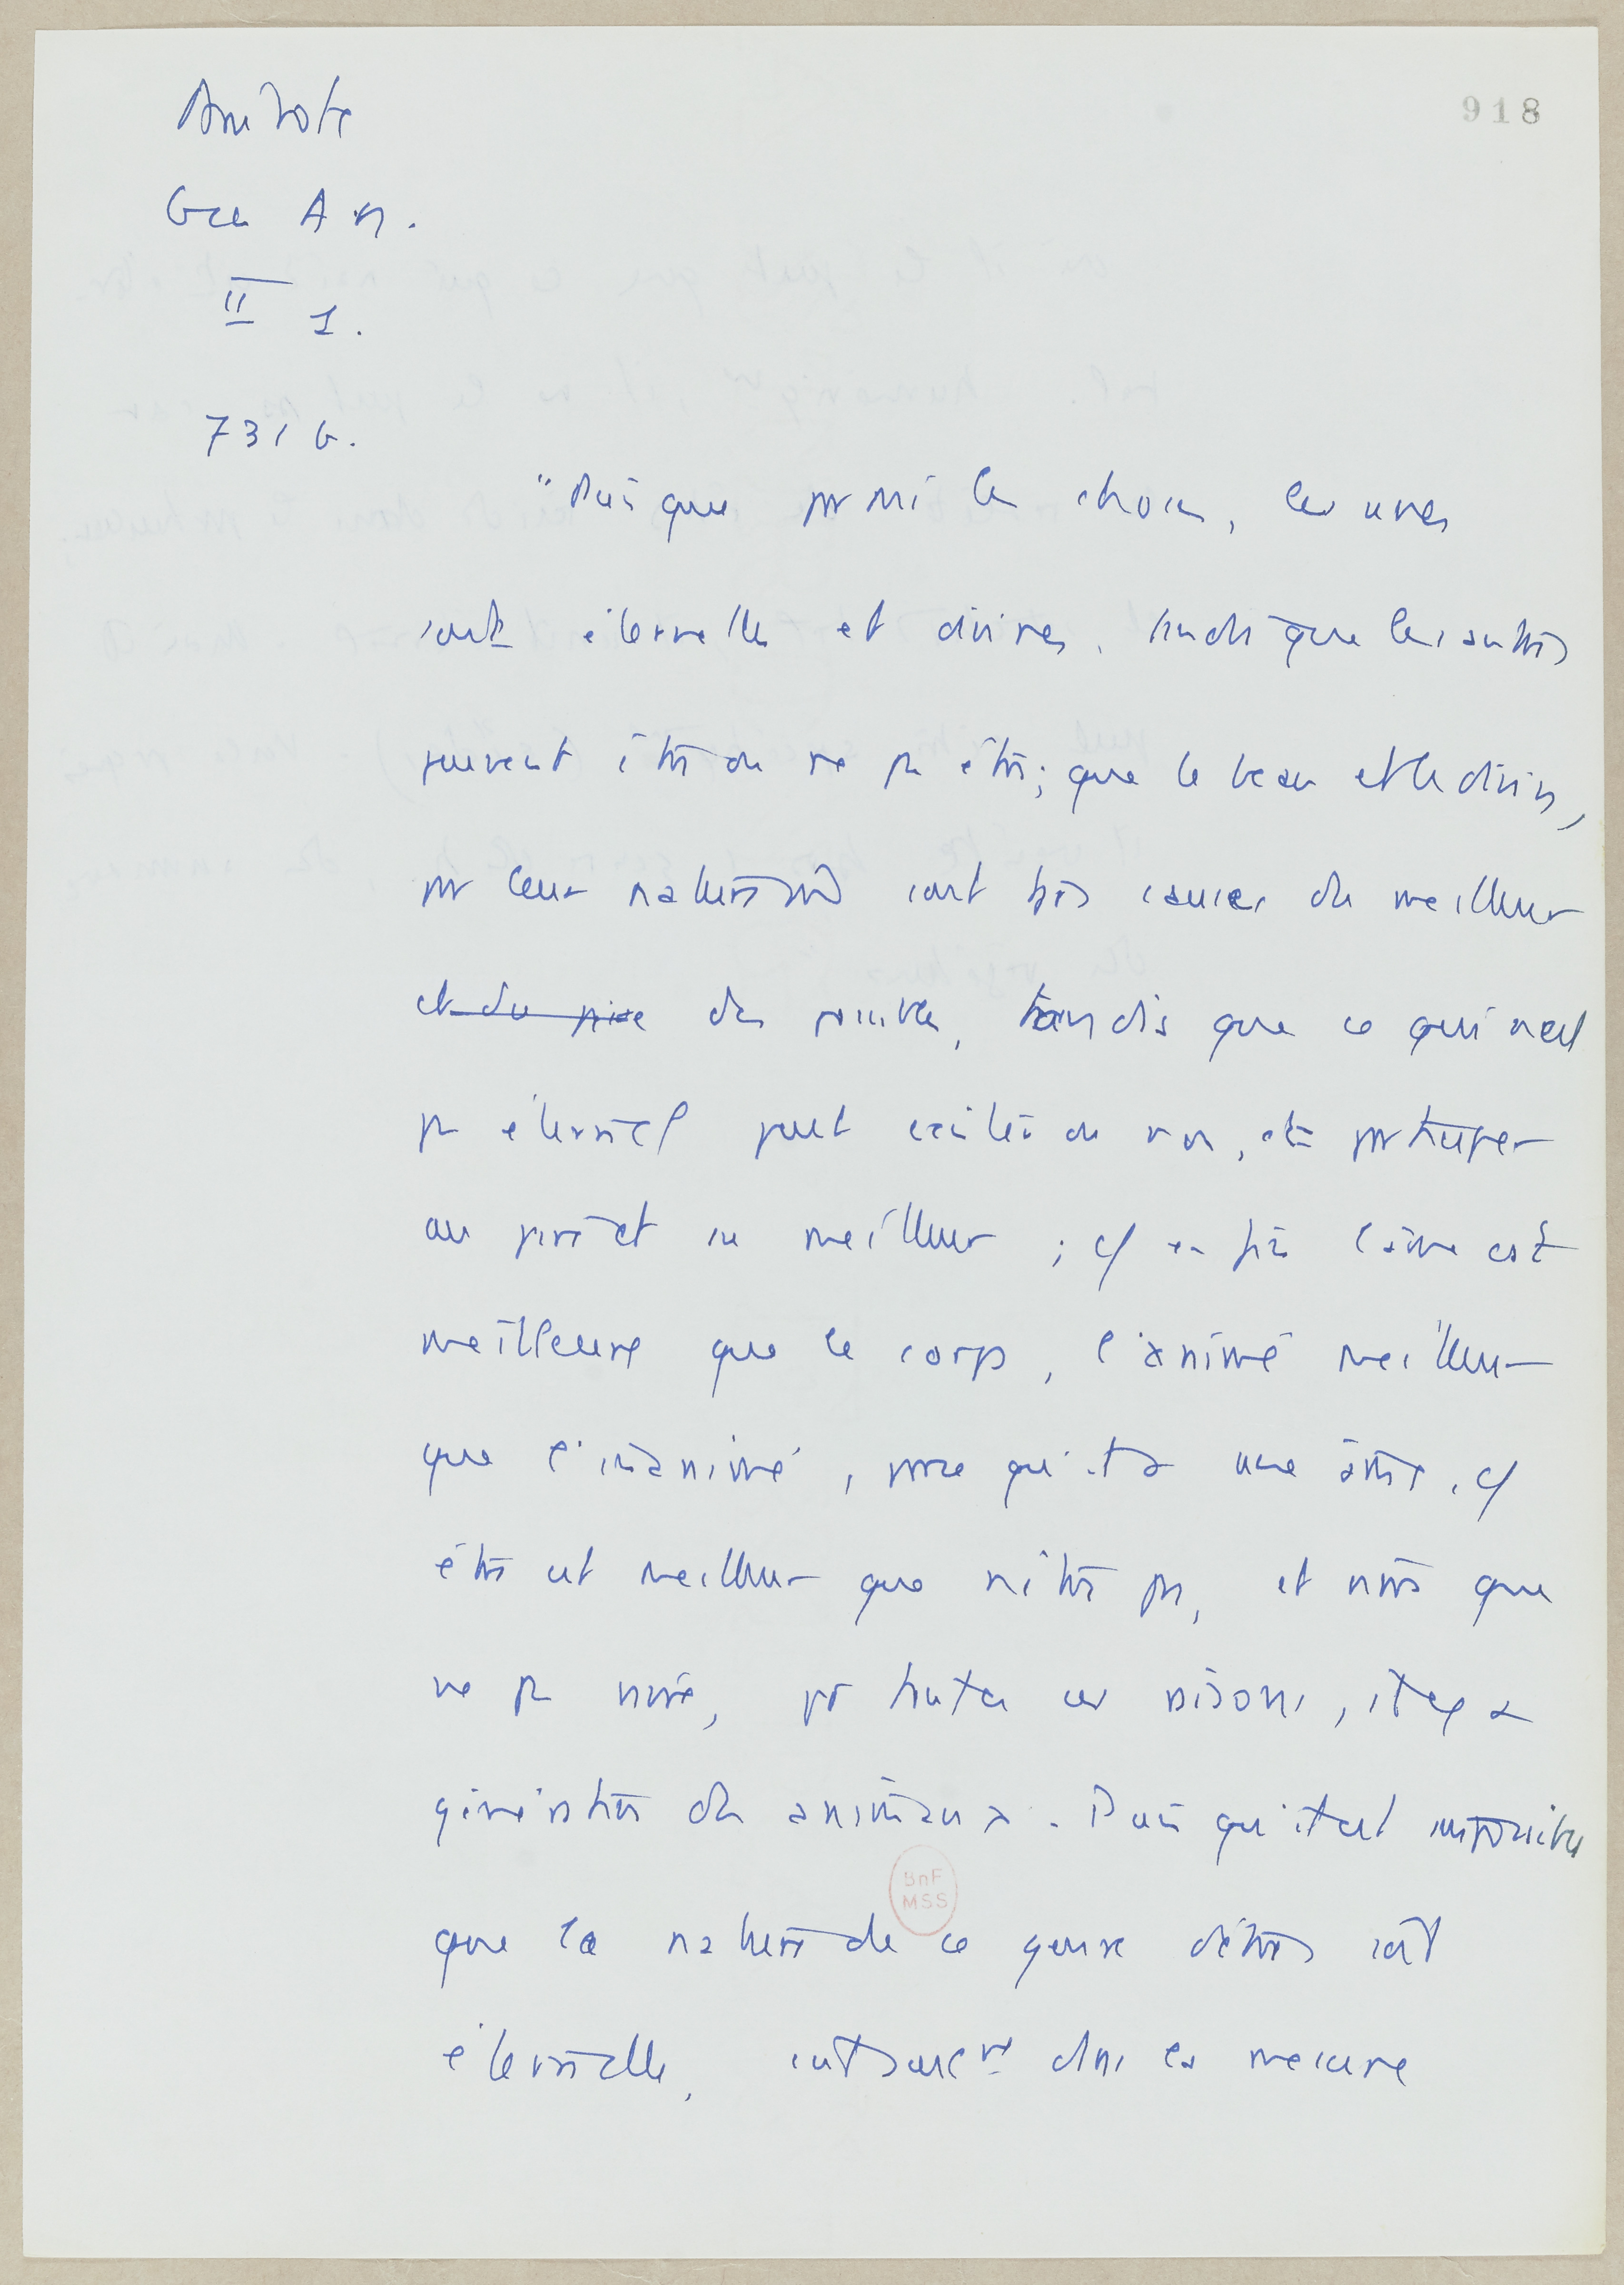 Aristote
918
Gen An.
II 1.
731 b.
"Puisque parmi les choses, les unes
sont éternelles et divines, tandis que les autres
peuvent être ou ne pas être; que le beau et le divin,
par leur nature sont tjrs causes du meilleur
et du pire des possibles, tandis que ce qui n'est
pas éternel peut exister ou non, et participer
au pire et au meilleur ; cf l'âme est
meilleure que le corps, l'animé meilleur
que l'inanimé, parce qu'il a une âme, cf
être est meilleur que n'être pas, et vivre que
ne pas vivre, pr toutes ces raisons, il y a
génération des animaux. Puisqu'il est impossible
que la nature de ce genre d'êtres soit
éternelle, c'est seulemt dans la mesure
BnF
MSS